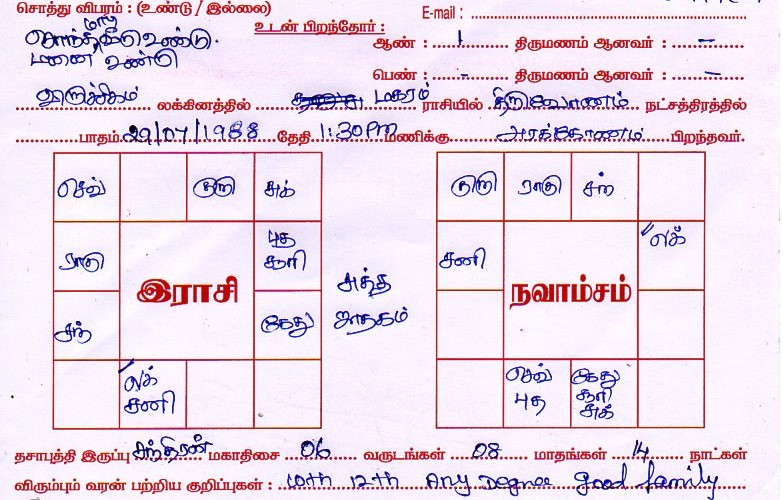 சொத்து விபரம் : (உண்டு / இல்லை)
E-mail :
சொந்த மாடி வீடு உண்டு.
மனை உண்டு
உடன் பிறந்தோர் :
ஆண் : 1 திருமணம் ஆனவர் : –
பெண் : - திருமணம் ஆனவர் : –
விருச்சிகம் லக்கினத்தில் மகரம் ராசியில் திருவோணம் நட்சத்திரத்தில்
பாதம் 29/07/1988 தேதி 1:30PM மணிக்கு அரக்கோணம் பிறந்தவர்.
செவ் குரு சுக்
ராகு புத சூரி
சந் இராசி கேது
லக் சனி
சுத்த ஜாதகம்
குரு ராகு சந்
சனி லக்
நவாம்சம்
செவ் புத கேது சூரி சுக்
தசாபுத்தி இருப்பு சந்திரன் மகாதிசை 06 வருடங்கள் 08 மாதங்கள் 14 நாட்கள்
விரும்பும் வரன் பற்றிய குறிப்புகள் : 10th 12th Any Degree good family